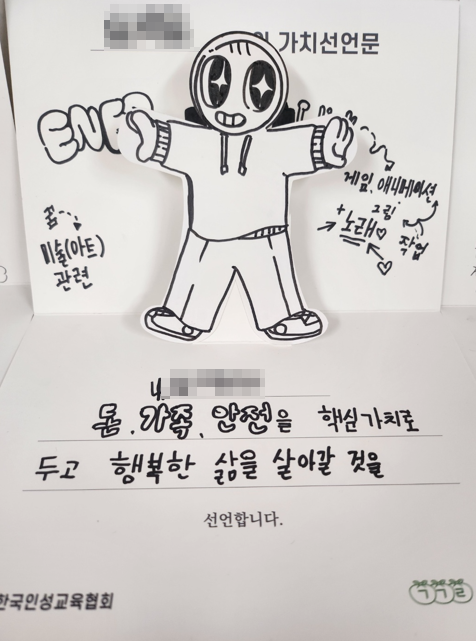 가치선언문
게임, 애니메이션
그림
+
노래♡
작업
꿈
미술(아트)
관련
돈, 가족, 안전을 핵심가치로
두고 행복한 삶을 살아갈 것을
선언합니다.
한국인성교육협회